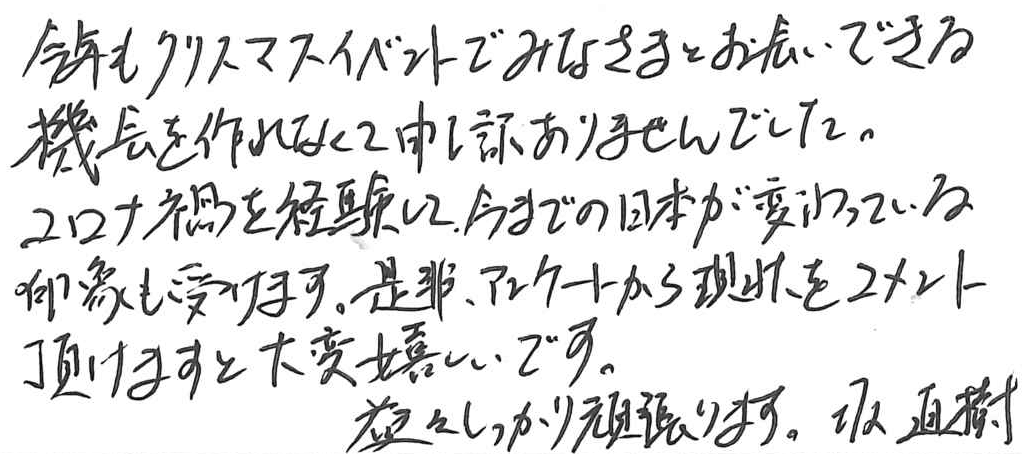 今年もクリスマスイベントでみなさまとお会いできる
機会を作れなくて申し訳ありませんでした。
コロナ禍を経験して、今までの日本が変わっている
印象も受けます。是非、アンケートから現状をコメント
頂けますと大変嬉しいです。
益々しっかり頑張ります。坂 直樹